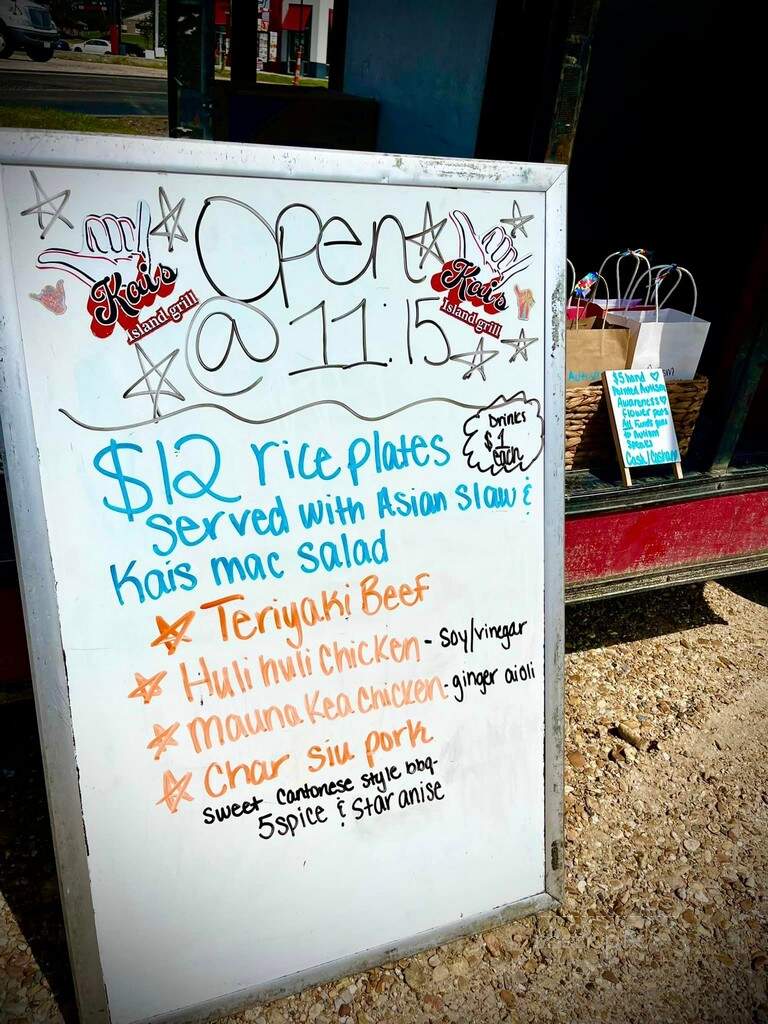 Open
@ 11:15
Kai's
Island grill
Kai's
Island grill
Drinks
$1
each
$12 rice plates
served with Asian Slaw &
Kais mac salad
Teriyaki Beef
Huli huli chicken - soy/vinegar
Mauna Kea chicken - ginger aioli
Char siu pork
sweet Cantonese style bbq-
5spice & star anise
$5 hand
Painted Autism
Awareness
Flower pots
All Funds goes
to Autism
Speaks
Cash/Cashapp